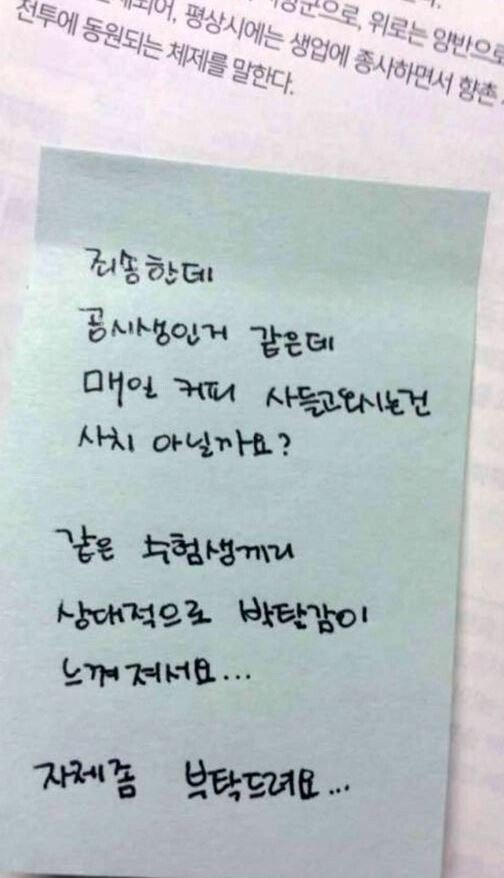 되어, 평상시에는 생업에 종사하면서 향촌
으로, 위로는 양반으로
전투에 동원되는 체제를 말한다.
죄송한데
공시생인거 같은데
매일 커피 사들고오시는건
사치 아닐까요?
같은 수험생끼리
상대적으로 박탈감이
느껴져서요...
자제좀 부탁드려요...